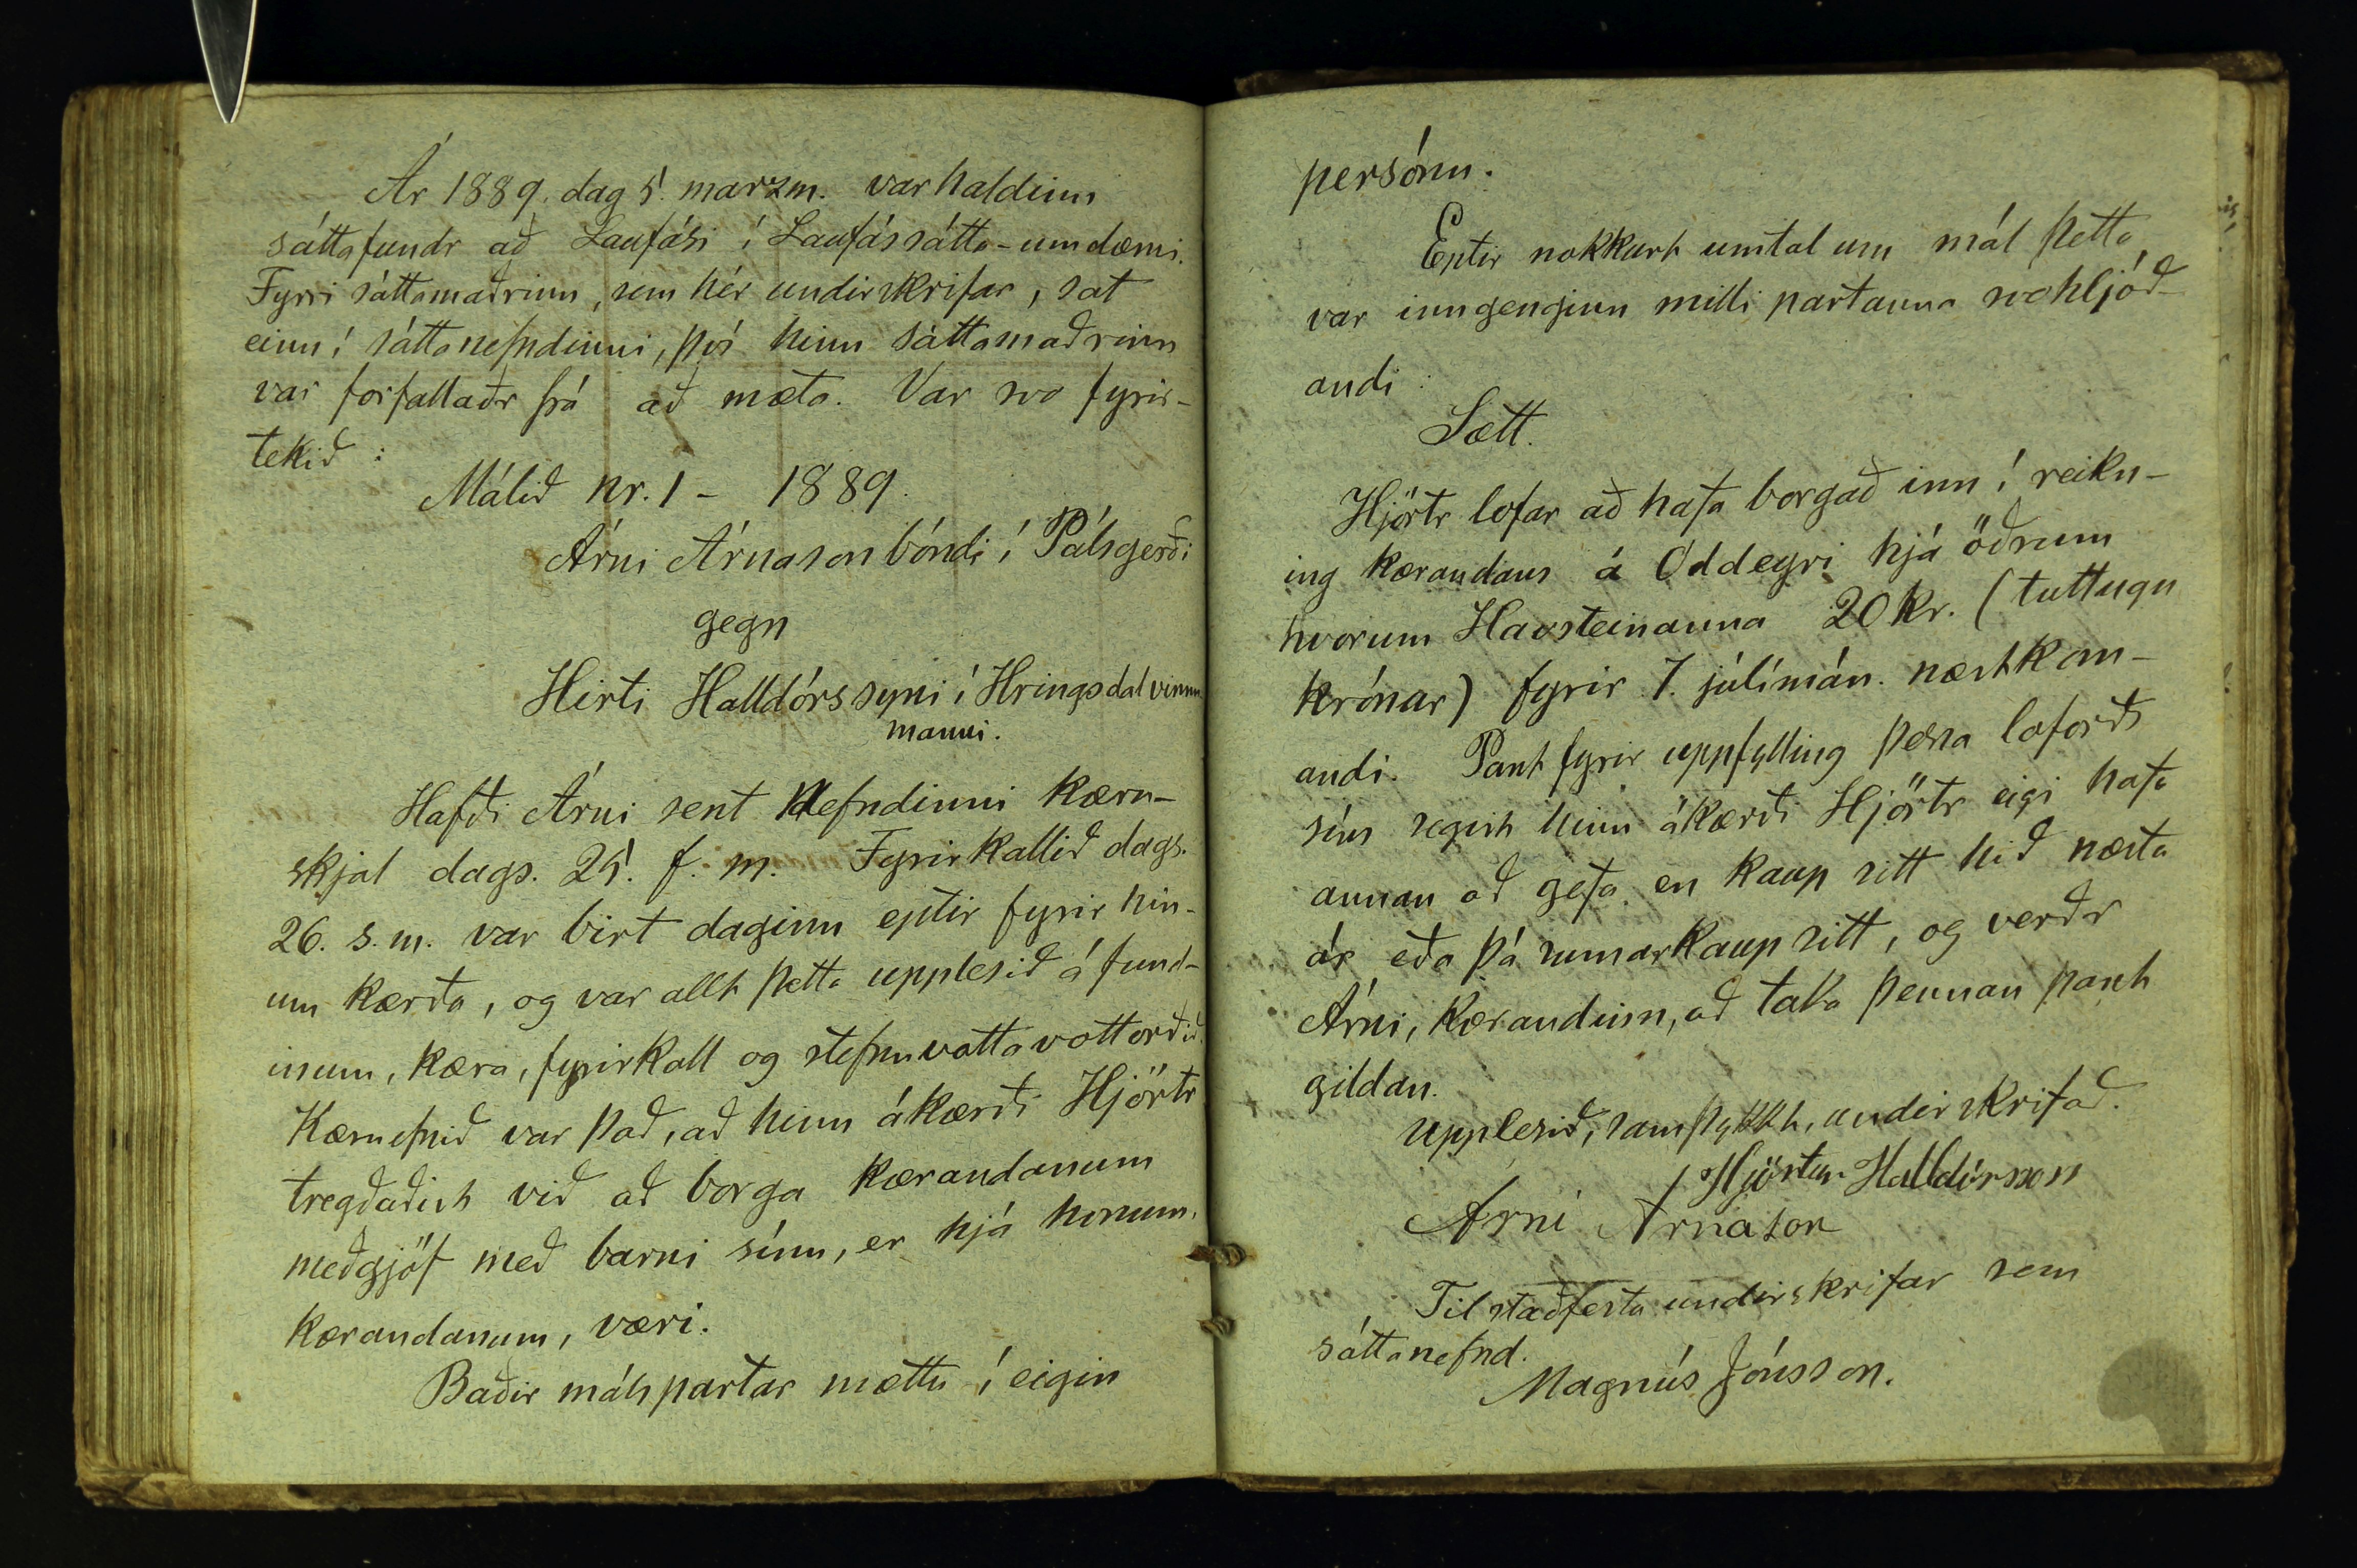 Ár 1889. dag 5. marzm. var haldinn
sáttafundr að Laufási í Laufássátta-umdæmi.
Fyrri sáttamaðrinn, sem hér undirskrifar, sat
einn í sáttanefndinni, því hinn sáttamaðrinn
var forfallaðr frá að mæta. Var svo fyrir-
tekið:
Málið nr. 1 - 1889.
Árni Árnason bóndi í Pálsgerði
gegn
Hirti Halldórssyni í Hringsdal vinnu
manni.
Hafði Árni sent nefndinni kæru-
skjal dags. 25. f. m. Fyrirkallið dags.
26. s. m. var birt daginn eptir fyrir hin-
um kærða, og var allt þetta upplesið á fund-
inum, kæra, fyrirkall og stefnuvottavottorðið.
Kæruefnið var það, að hinn ákærði Hjörtr
tregðaðist við að borga kærandanum
meðgjöf með barni sínu, er hjá honum,
kærandanum, væri.
Baðir málspartar mættu í eigin
persónu.
Eptir nokkurt umtal um mál þetta,
var inngenginn milli partanna svohljóð-
andi:
Sætt.
Hjörtr lofar að hafa borgað inn í reikn-
ing kærandans á Oddeyri hjá öðrum
hvorum Havsteinanna 20 kr. (tuttugu
krónar) fyrir 7. júlímán. næstkom-
andi. Pant fyrir uppfylling þessa loforðs
síns segist hinn ákærði Hjörtr eigi hafa
annan að gefa en kaup sitt hið næsta
ár eða þá sumarkaup sitt, og verðr
Árni, kærandinn, að taka þennan pant
gildan.
Upplesið, samþykkt, undirskrifað.
Hjörtur Halldórsson
Árni Árnason
Til staðfestu undirskrifar sem
sáttanefnd.
Magnús Jónsson.